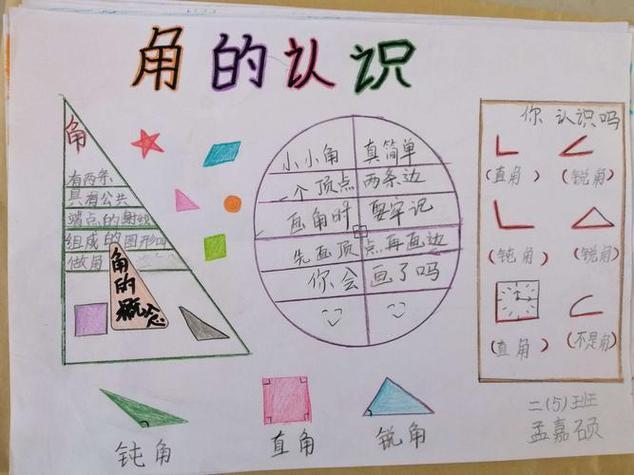 角的认识
角
有两条
具有公共
端点的射线
组成的图形叫
做角
角的概念
小小角 真简单
一个顶点 两条边
画角时 要牢记
先画顶 点再画边
你会 画了吗
你认识吗
(直角) (锐角)
(钝角) (锐角)
(直角) (不是角)
钝角 直角 锐角
二(5)班
孟嘉硕